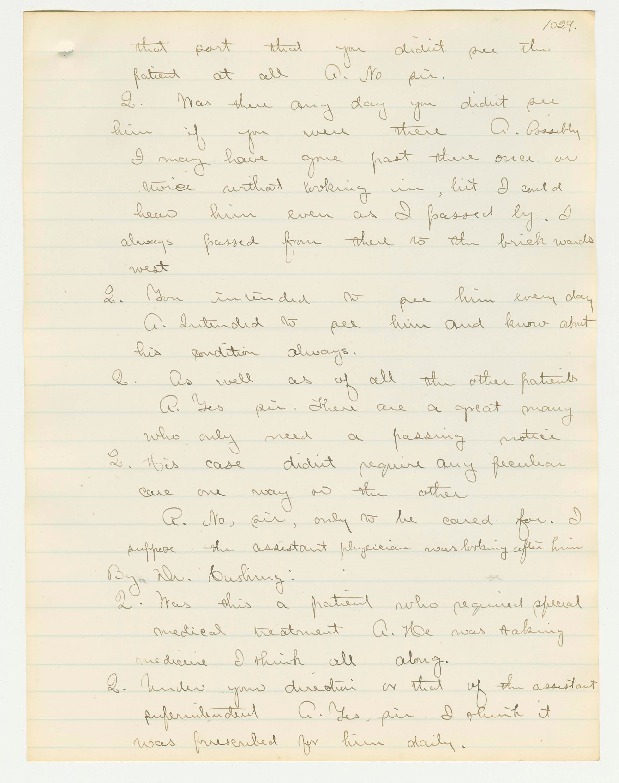 1029.
that part that you didn't see the
patient at all A. No sir.
Q. Was there any day you didn't see
him if you were there A. Possibly
I may have gone past there once or
twice without looking in, but I could
hear him even as I passed by. I
always passed from there to the brick wards
west
Q. You intended to see him every day
A. Intended to see him and know about
his condition always.
Q. As well as of all the other patients
A. Yes sir. There are a great many
who only need a passing notice
Q. His case didn't require any peculiar
care one way or the other
A. No, sir, only to be cared for. I
suppose the assistant physician was looking after him
By Dr. Cushing:
Q. Was this a patient who required special
medical treatment A. He was taking
medicine I think all along.
Q. Under your direction or that of the assistant
superintendent A. Yes, sir I think it
was prescribed for him daily.